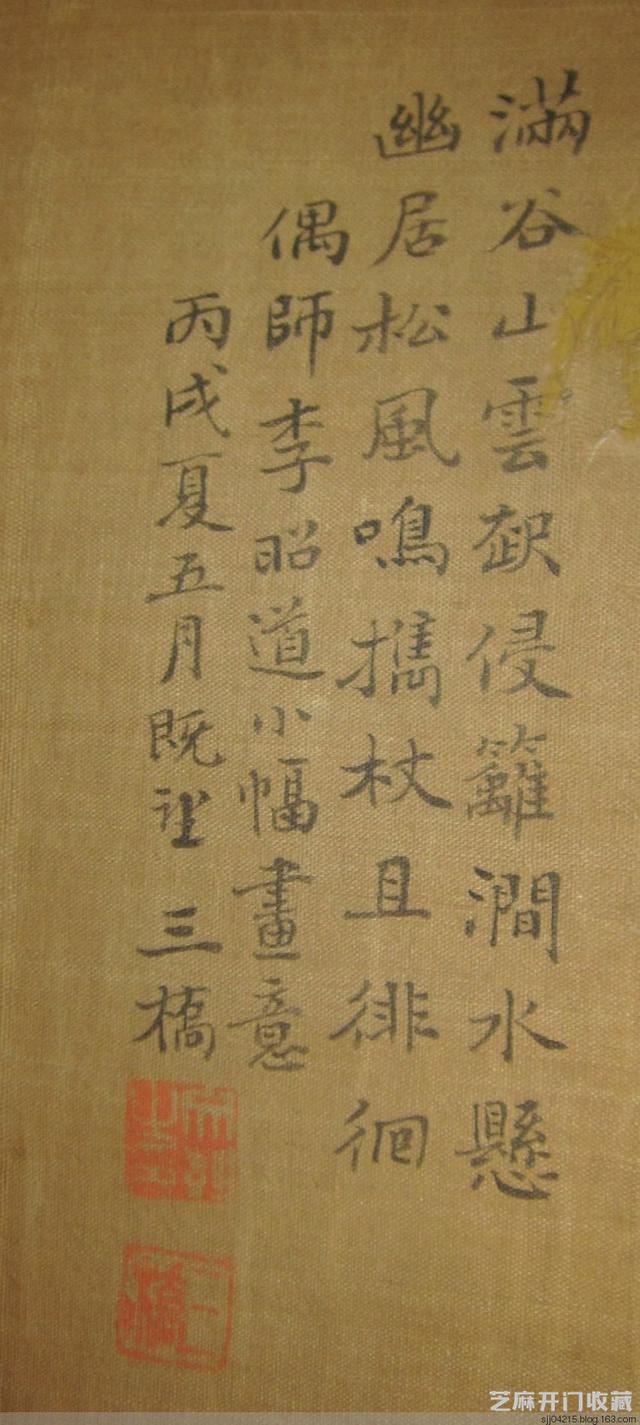 滿谷山雲起侵籬澗水懸
幽居松風鳴擕杖且徘徊
偶師李昭道小幅畫意
丙戌夏五月既望 三橋
三橋
芝麻开门收藏
sjj04215.blog.163.com